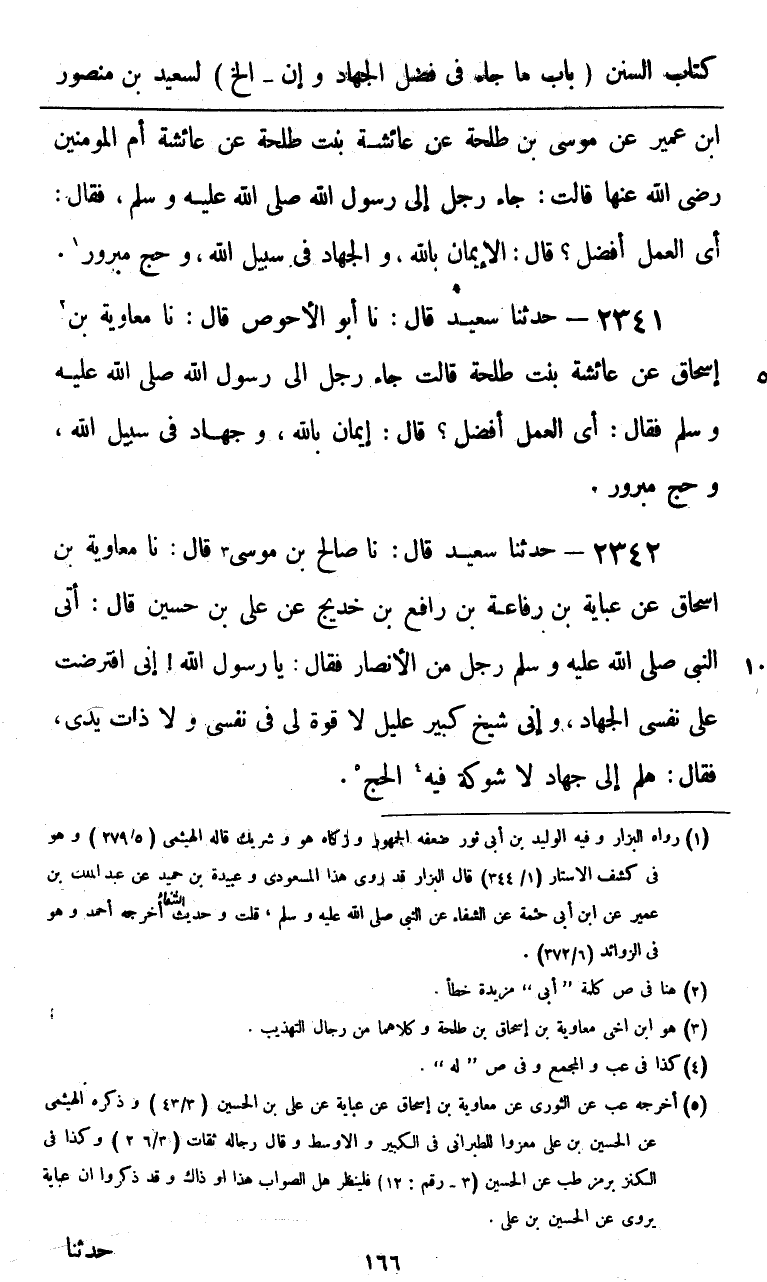 كتاب السنن ( باب ما جاء فى فضل الجهاد و إن ـ الخ ) لسعيد بن منصور
ابن عمير عن موسى بن طلحة عن عائشة بنت طلحة عن عائشة أم المومنين
رضى الله عنها قالت : جاء رجل إلى رسول الله صلى الله عليه و سلم ، فقال :
أى العمل أفضل ؟ قال : الإيمان بالله ، و الجهاد فى سبيل الله ، و حج مبرور ١ .
٢٣٤١ – حدثنا سعيد قال : نا أبو الأحوص قال : نا معاوية بن ٢
إسحاق عن عائشة بنت طلحة قالت جاء رجل الى رسول الله صلى الله عليه ٥
و سلم فقال : أى العمل أفضل ؟ قال : إيمان بالله ، و جهاد فى سبيل الله ،
و حج مبرور .
٢٣٤٢ – حدثنا سعيد قال : نا صالح بن موسى ٣ قال : نا معاوية بن
اسحاق عن عباية بن رفاعة بن رافع بن خديج عن على بن حسين قال : أتى
النبي صلى الله عليه و سلم رجل من الأنصار فقال : يا رسول الله ! إنى افترضت ١٠
على نفسى الجهاد ، و إنى شيخ كبير عليل لا قوة لى فى نفسى و لا ذات يدى ،
فقال : هلم إلى جهاد لا شوكة فيه ٤ الحج ٥ .
(١) رواه البزار و فيه الوليد بن أبى ثور ضعفه الجمهور و زكاه هو و شريك قاله الهيثمى ( ٢٧٩/٥ ) و هو
فى كشف الاستار (٣٤٤/١) قال البزار قد روى هذا المسعودى و عبيدة بن حميد عن عبد الملك بن
عمير عن ابن أبى حثمة عن الشفاء عن النبي صلى الله عليه و سلم ، قلت و حديث الشفاء أخرجه أحمد و هو
فى الزوائد (٣٧٢/٦) .
(٢) هنا فى ص كلمة ” أبى “ مزيدة خطأ .
(٣) هو ابن اخى معاوية بن إسحاق بن طلحة و كلاهما من رجال التهذيب .
(٤) كذا فى عب و المجمع و فى ص ” له “ .
(٥) أخرجه عب عن الثورى عن معاوية بن إسحاق عن عباية عن على بن الحسين ( ٤٣/٣ ) و ذكره الهيثمى
عن الحسين بن على معزوا للطبرانى فى الكبير و الاوسط و قال رجاله ثقات ( ٢٠٦/٣ ) و كذا فى
الكنز برمز طب عن الحسين (٣ ـ رقم : ١٢) فلينظر هل الصواب هذا او ذاك و قد ذكروا ان عباية
يروى عن الحسين بن على .
حدثنا
١٦٦